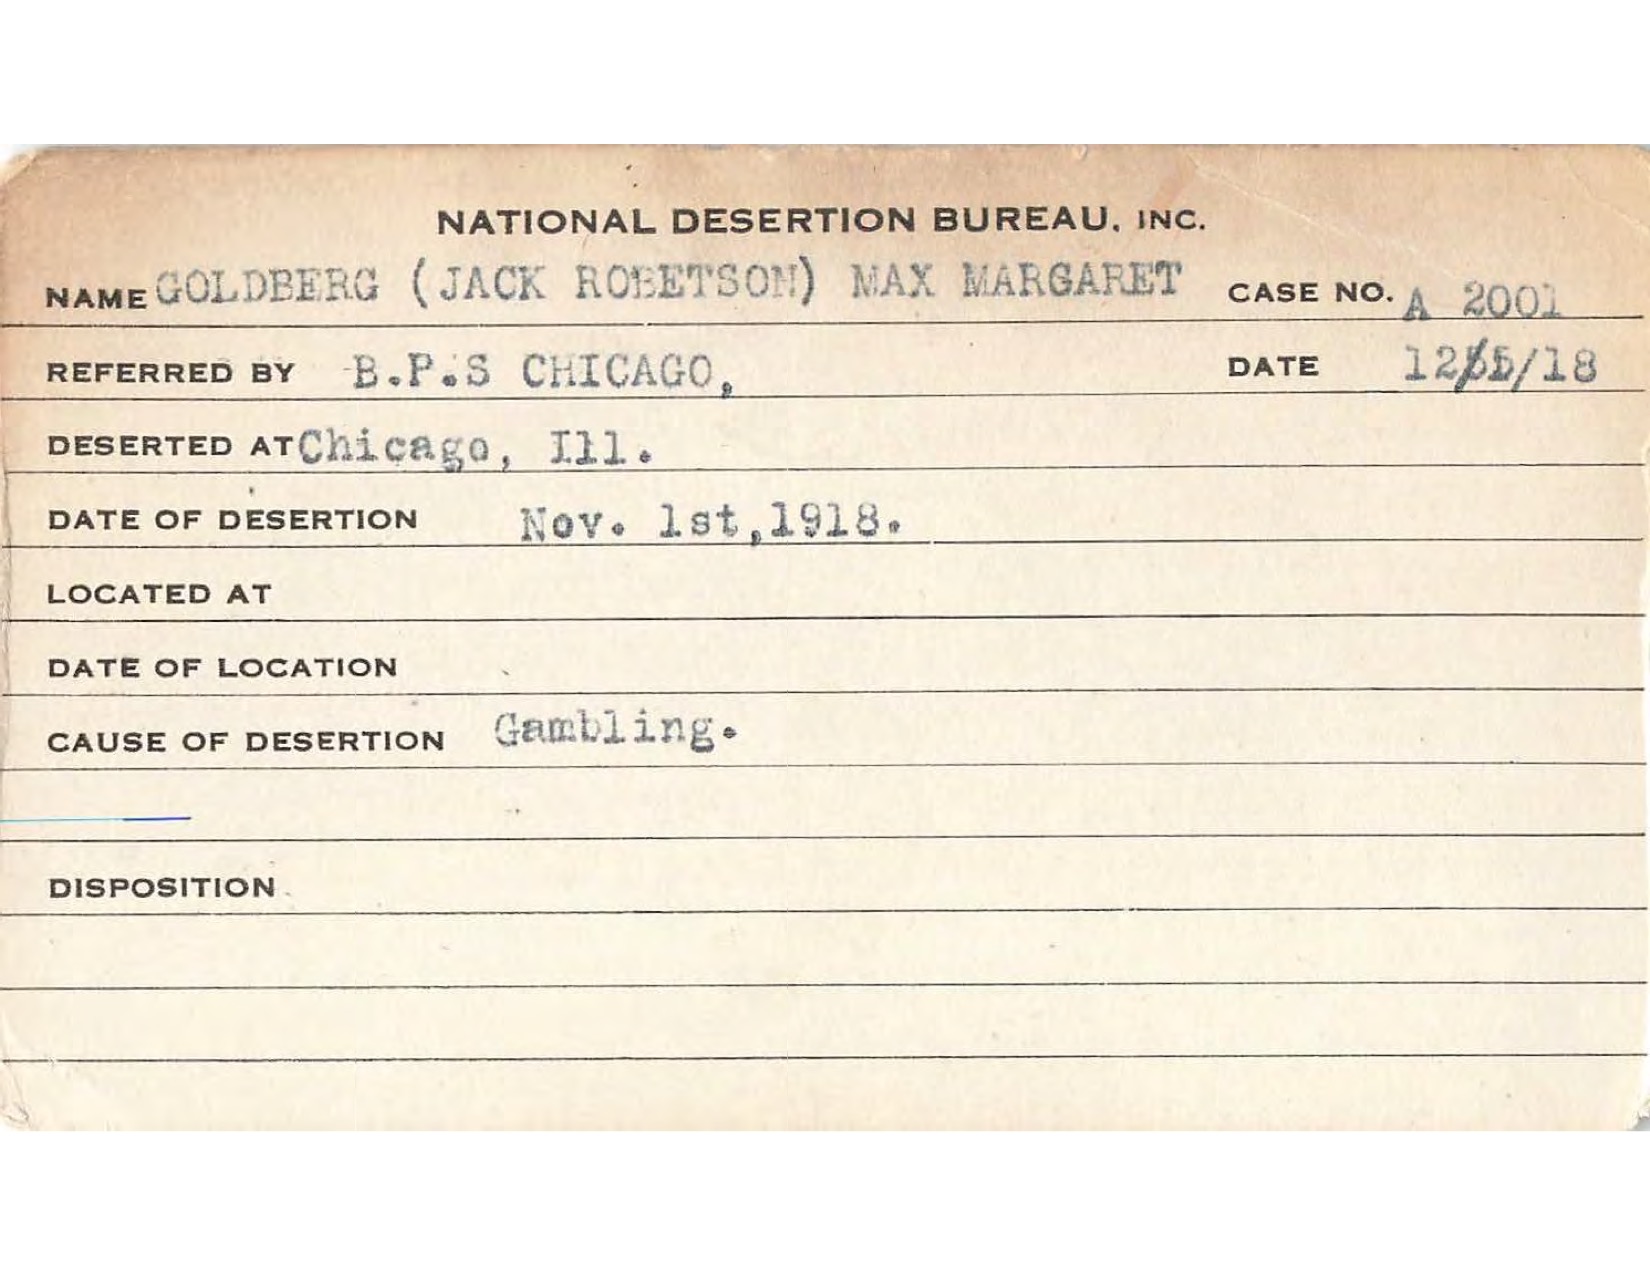 NATIONAL DESERTION BUREAU, INC.
NAME GOLDBERG (JACK ROBETSON) MAX MARGARET CASE NO. A 2001
REFERRED BY B.P.S CHICAGO, DATE /18
DESERTED AT Chicago, Ill.
DATE OF DESERTION Nov. 1st,1918.
LOCATED AT
DATE OF LOCATION
CAUSE OF DESERTION Gambling.
DISPOSITION